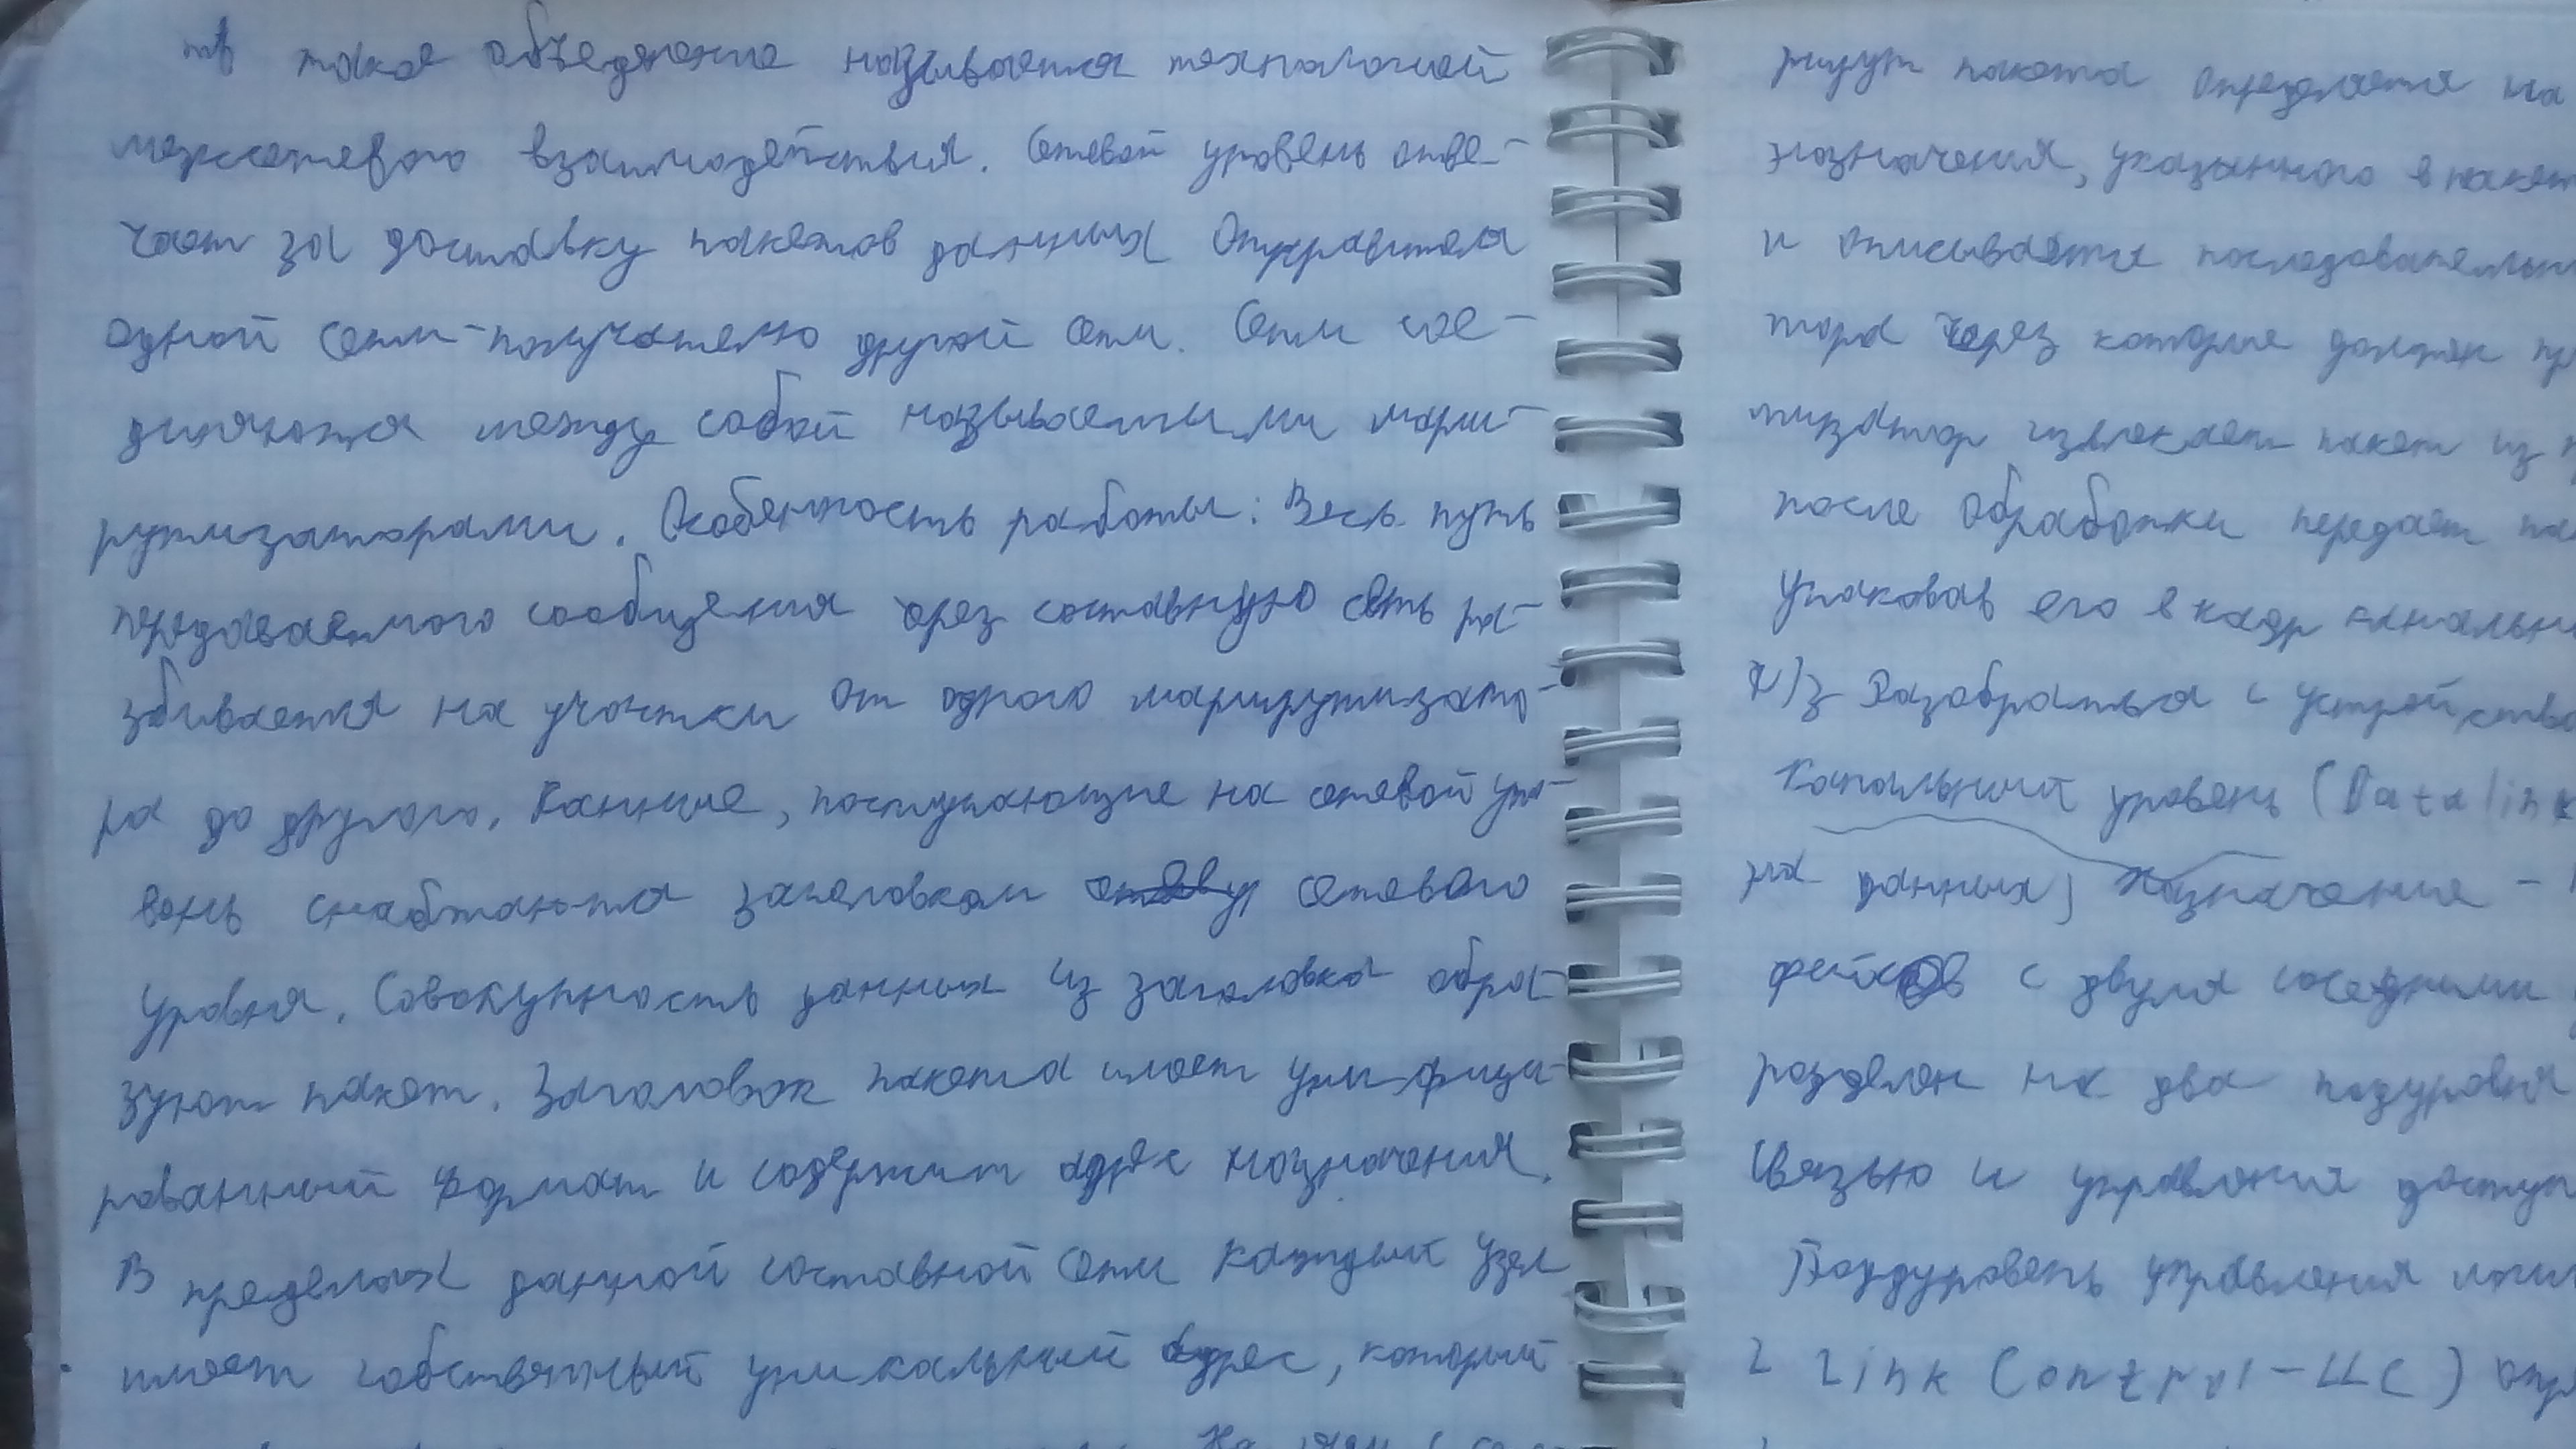 такое объединение называется технологией
межсетевого взаимодействия. Сетевой уровень отве-
чает за доставку пакетов данных отправителя
одной сети-получателю другой сети. Сети сое-
диняются между собой называемыми марш-
рутизаторами. Особенность работы: Весь путь
передаваемого сообщения через составную сеть ра-
збивается на участки от одного маршрутизато-
ра до другого. Данные, поступающие на сетевой уро-
вень снабжаются заголовком сетевого
уровня. Совокупность данных из заголовка обра-
зуют пакет. Заголовок пакета имеет унифици-
рованный формат и содержит адрес назначения.
В пределах данной составной сети каждый узел
имеет собственный уникальный адрес, который
пакета определяется на
назначения, указанного в
и описывается
тора через которые должен
тизатор извлекает пакет из
после обработки передает
упаковав его в кадр
Д/з Разобраться с
Канальный уровень (Data link
на данных) Назначение -
фейсов с двумя соседними
разделен на два подуровня
связью и управления
Подуровень управления
Link Control-LLC)